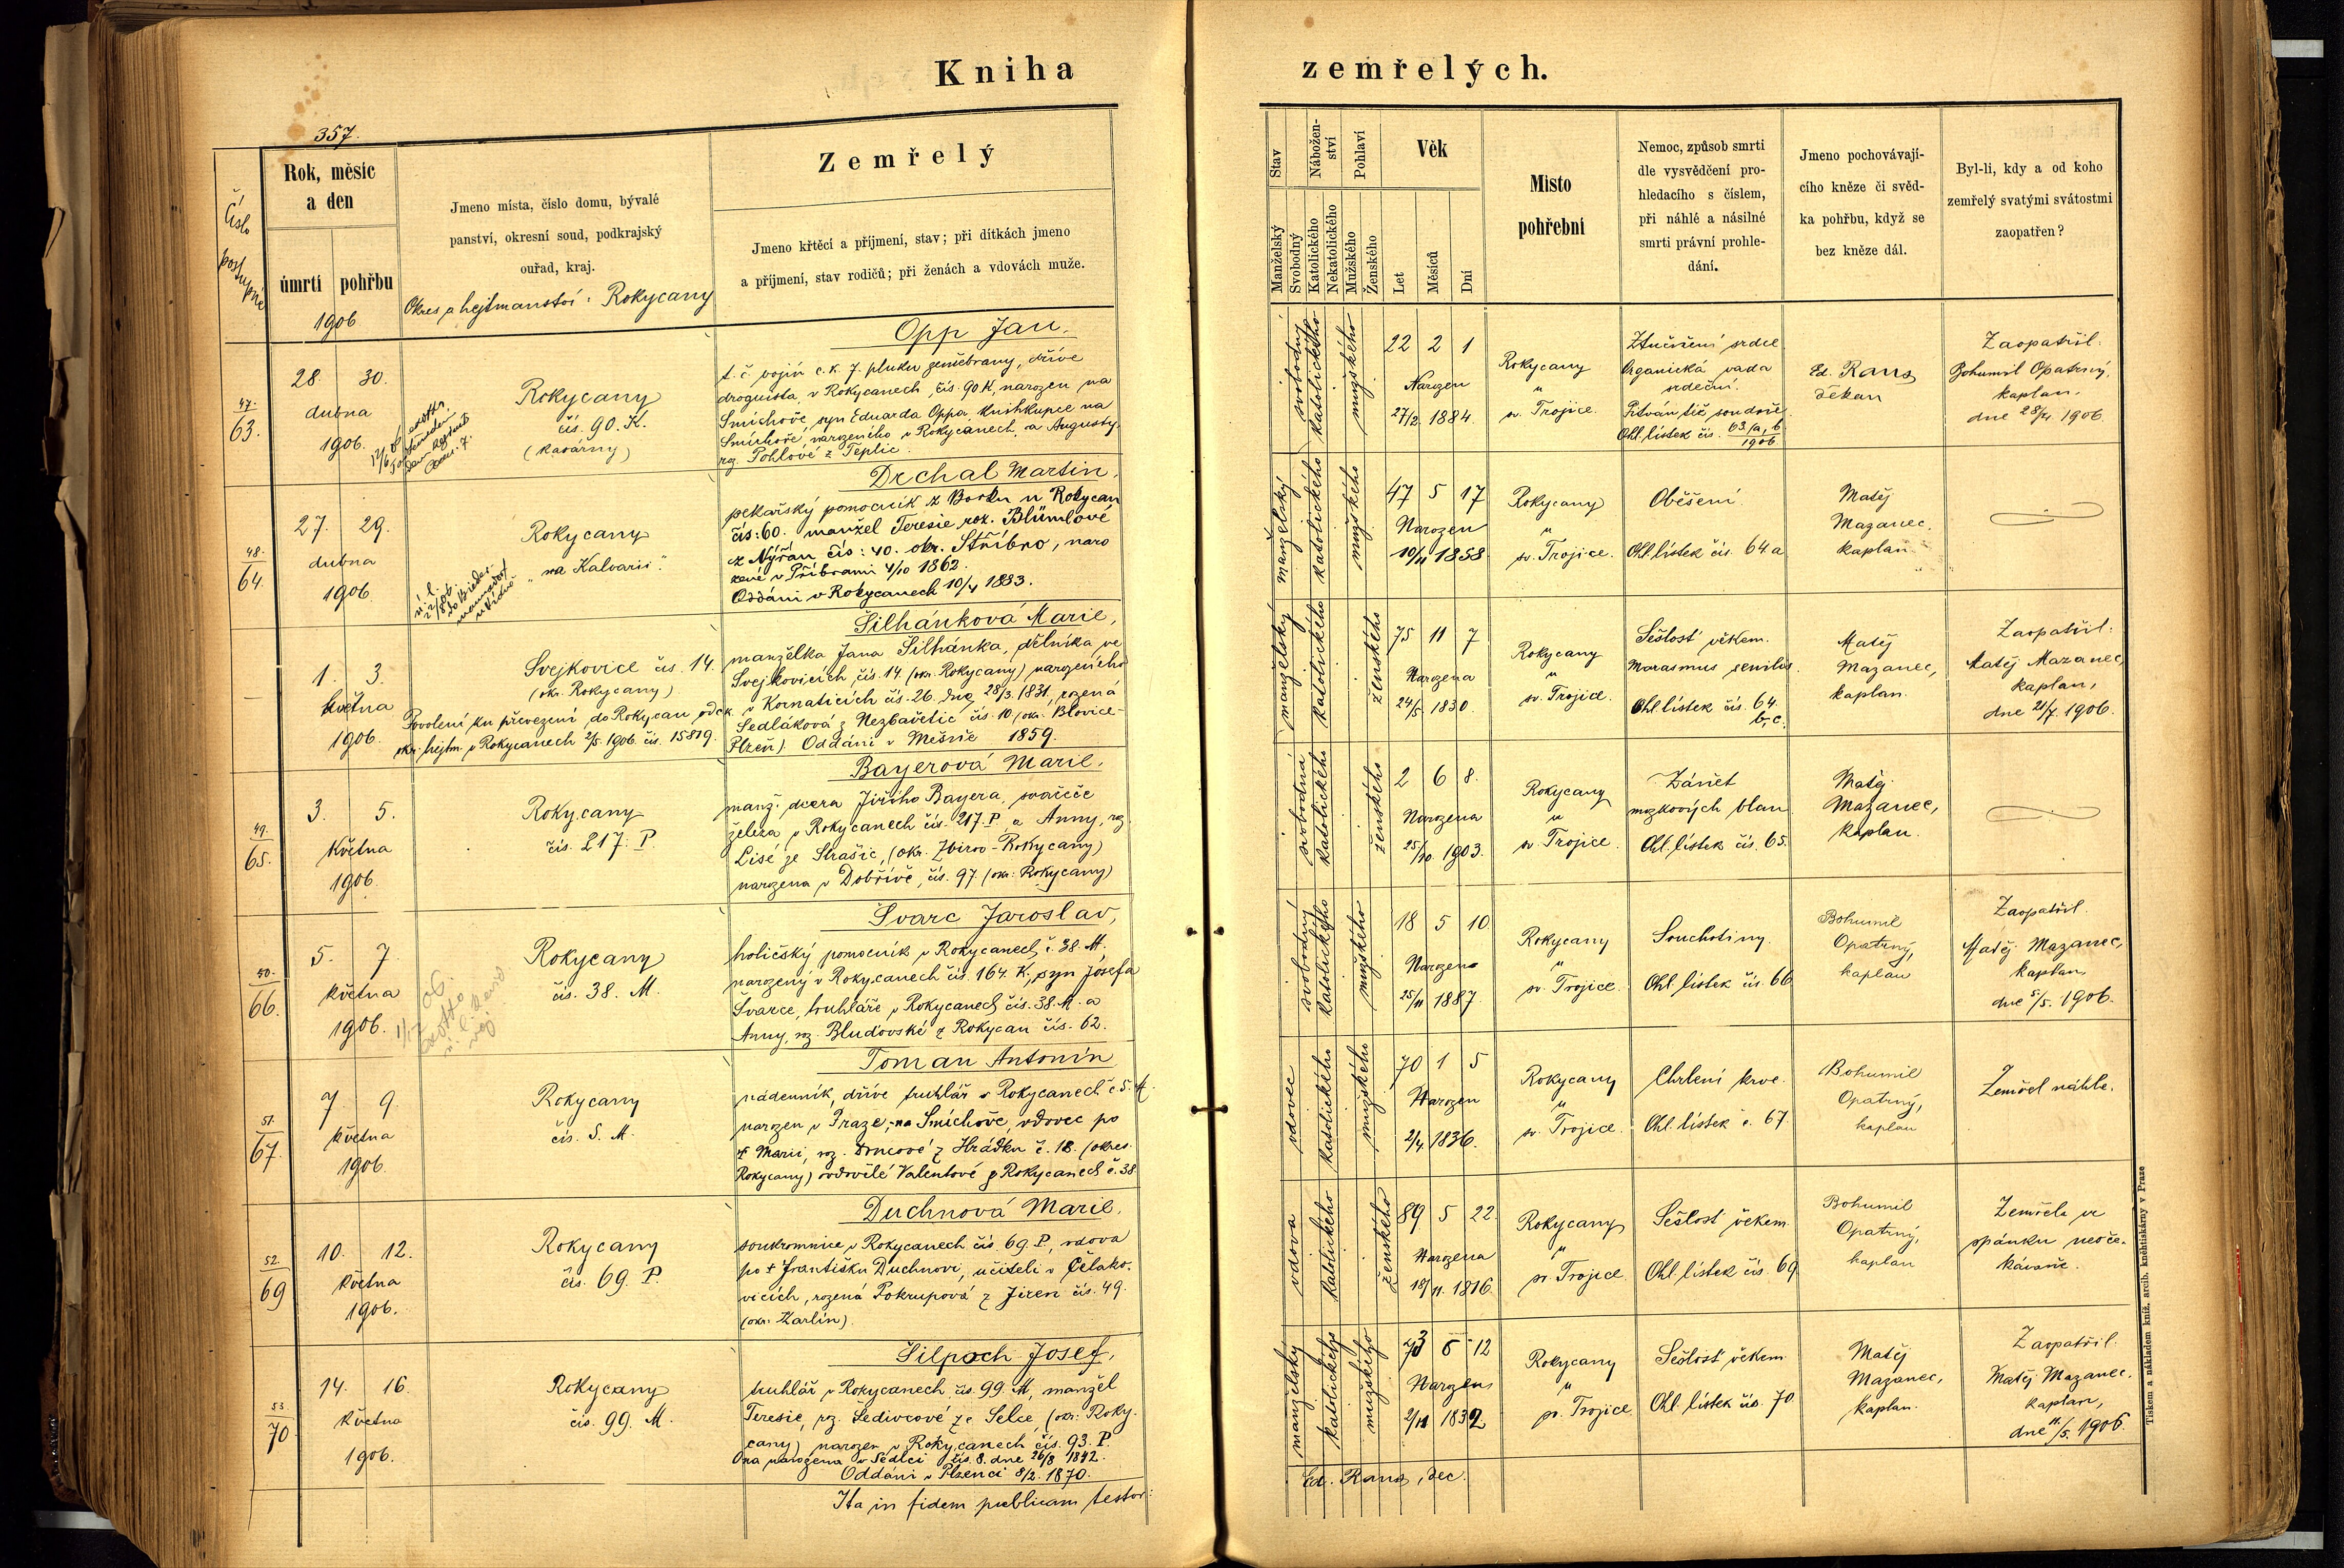 Kniha
357.
Číslo postupné
Rok, měsíc
a den
úmrtí
pohřbu
1906
Jmeno místa, číslo domu, bývalé
panství, okresní soud, podkrajský
ouřad, kraj.
Okres a hejtmanství: Rokycany
Zemřelý
Jmeno křtěcí a příjmení, stav; při dítkách jmeno
a příjmení, stav rodičů; při ženách a vdovách muže.
47.
63.
28. 30.
dubna
1906.
Rokycany
čís. 90. K.
(kasárny)
Opp Jan,
t. č. vojín c. k. 7. pluku zeměbrany, dříve
droguista, v Rokycanech, čís. 90 K, narozen na
Smíchově, syn Eduarda Oppa, knihkupce na
Smíchově, narozeného v Rokycanech, a Augusty
roz. Pohlové z Teplic.
48.
64.
27. 29.
dubna
1906
Rokycany
"na Kalvarii".
Drchal Martin,
pekařský pomocník z Borku u Rokycan
čís: 60. manžel Teresie roz. Blümlové
z Nýřan čís: 40. okr. Stříbro, naro
zené v Příbrami 4/10 1862.
Oddáni v Rokycanech 10/4 1883.
1. 3.
května
1906.
Svejkovice čís. 14.
(okr. Rokycany)
Povolení ku převezení do Rokycan od c. k.
okr. hejtm. v Rokycanech 2/5 1906. čís. 15819.
Šilhánková Marie,
manželka Jana Šilhánka, dělníka ve
Svejkovicích, čís. 14. (okr. Rokycany) narozeného
v Kornaticích čís. 26. dne 28/3. 1831, rozená
Sedláková z Nezbavětic čís. 10 (okr. Blovice-
Plzeň). Oddáni v Mešně 1859.
49.
65.
3. 5.
května
1906.
Rokycany
čís. 217. P.
Bayerová Marie,
manž. dcera Jiřího Bayera, svářeče
železa v Rokycanech čís. 217. P. a Anny, roz
Lisé ze Strašic, (okr. Zbirov-Rokycany)
narozena v Dobřívě, čís. 97 (okr. Rokycany)
50.
66.
5. 7.
května
1906.
Rokycany
čís. 38. M.
Švarc Jaroslav,
holičský pomocník v Rokycanech č. 38. M,
narozený v Rokycanech čís. 164. K, syn Josefa
Švarce, truhláře v Rokycanech čís. 38. M. a
Anny, roz. Bludovské z Rokycan čís. 62.
51.
67.
7. 9.
května
1906.
Rokycany
čís. 5. M.
Toman Antonín
nádenník, dříve truhlář v Rokycanech č. 5. M.
narozen v Praze, na Smíchově, vdovec po
† Marii, roz. z Hrádku č. 18. (okres
Rokycany) ovdovělé Valentové z Rokycanech č. 38
52.
69
10. 12.
května
1906.
Rokycany
čís. 69. P.
Duchnová Marie,
soukromnice v Rokycanech čís. 69. P., vdova
po † Františku Duchnovi, učiteli v Čelako-
vicích, rozená Pokrupová z Jiren čís. 49.
(okr. Karlín).
53
70
14. 16.
května
1906.
Rokycany
čís. 99. M.
Šilpoch Josef,
truhlář v Rokycanech, čís. 99. M, manžel
Teresie, roz. Šedivcové ze Selce, (okr. Roky-
cany) narozen v Rokycanech, čís. 93. P.
Ona narozena v Sedlci čís. 8. dne 26/8 1842.
Oddáni v Plzenci 8/2. 1870.
Ita in fidem publicam testor:
zemřelých.
Stav
Manželský
Svobodný
Nábožen-
ství
Katolického
Nekatolického
Pohlaví
Mužského
Ženského
Věk
Let
Měsíců
Dní
Místo
pohřební
Nemoc, způsob smrti
dle vysvědčení pro-
hledacího s číslem,
při náhlé a násilné
smrti právní prohle-
dání.
Jmeno pochovávají-
cího kněze či svěd-
ka pohřbu, když se
bez kněze dál.
Byl-li, kdy a od koho
zemřelý svatými svátostmi
zaopatřen?
svobodný
katolického
mužského
22 2 1
Narozen
27/2 1884.
Rokycany
u
sv. Trojice.
Ztučnění srdce
Organická vada
srdeční.
Pitván též soudně
Ohl. lístek čís. 63./a, b
1906
Ed. Rans
děkan
Zaopatřil.
Bohumil Opatrný,
kaplan.
dne 28/4. 1906.
manželský
katolického
mužského
47 5 17
Narozen
10/11 1858
Rokycany
u
sv. Trojice.
Oběšení
Ohl. lístek čís. 64 a
Matěj
Mazanec,
kaplan
manželský
katolického
ženského
75 11 7
Narozena
24/5 1830.
Rokycany
u
sv. Trojice.
Sešlost věkem.
Marasmus senilis.
Ohl. lístek čís. 64.
b, c.
Matěj
Mazanec,
kaplan.
Zaopatřil.
Matěj Mazanec,
kaplan,
dne 1906.
svobodná
katolického
ženského
2 6 8.
Narozena
25/10 1903.
Rokycany
u
sv. Trojice.
Zánět
mozkových blan
Ohl. lístek čís. 65.
Matěj
Mazanec,
kaplan.
svobodný
katolického
mužského
18 5 10
Narozen
25/11 1887.
Rokycany
u
sv. Trojice.
Souchotiny.
Ohl. lístek čís. 66
Bohumil
Opatrný,
kaplan
Zaopatřil.
Matěj Mazanec,
kaplan
dne 5/5. 1906.
vdovec
katolického
mužského
70 1 5
Narozen
2/4 1836.
Rokycany
u
sv. Trojice.
Chrlení krve.
Ohl. lístek č. 67.
Bohumil
Opatrný,
kaplan
Zemřel náhle.
vdova
katolického
ženského
89 5 22
Narozena
18/11. 1816
Rokycany
u
sv. Trojice.
Sešlost věkem.
Ohl. lístek čís. 69
Bohumil
Opatrný,
kaplan
Zemřela ve
spánku neoče-
kávaně.
manželský
katolického
mužského
73 6 12
Narozen
2/11 1832
Rokycany
u
sv. Trojice.
Sešlost věkem
Ohl. lístek čís. 70
Matěj
Mazanec,
kaplan.
Zaopatřil.
Matěj Mazanec,
kaplan,
dne 11/5. 1906.
Ed. Rans, dec.
Tiskem a nákladem kníž. arcib. knihtiskárny v Praze